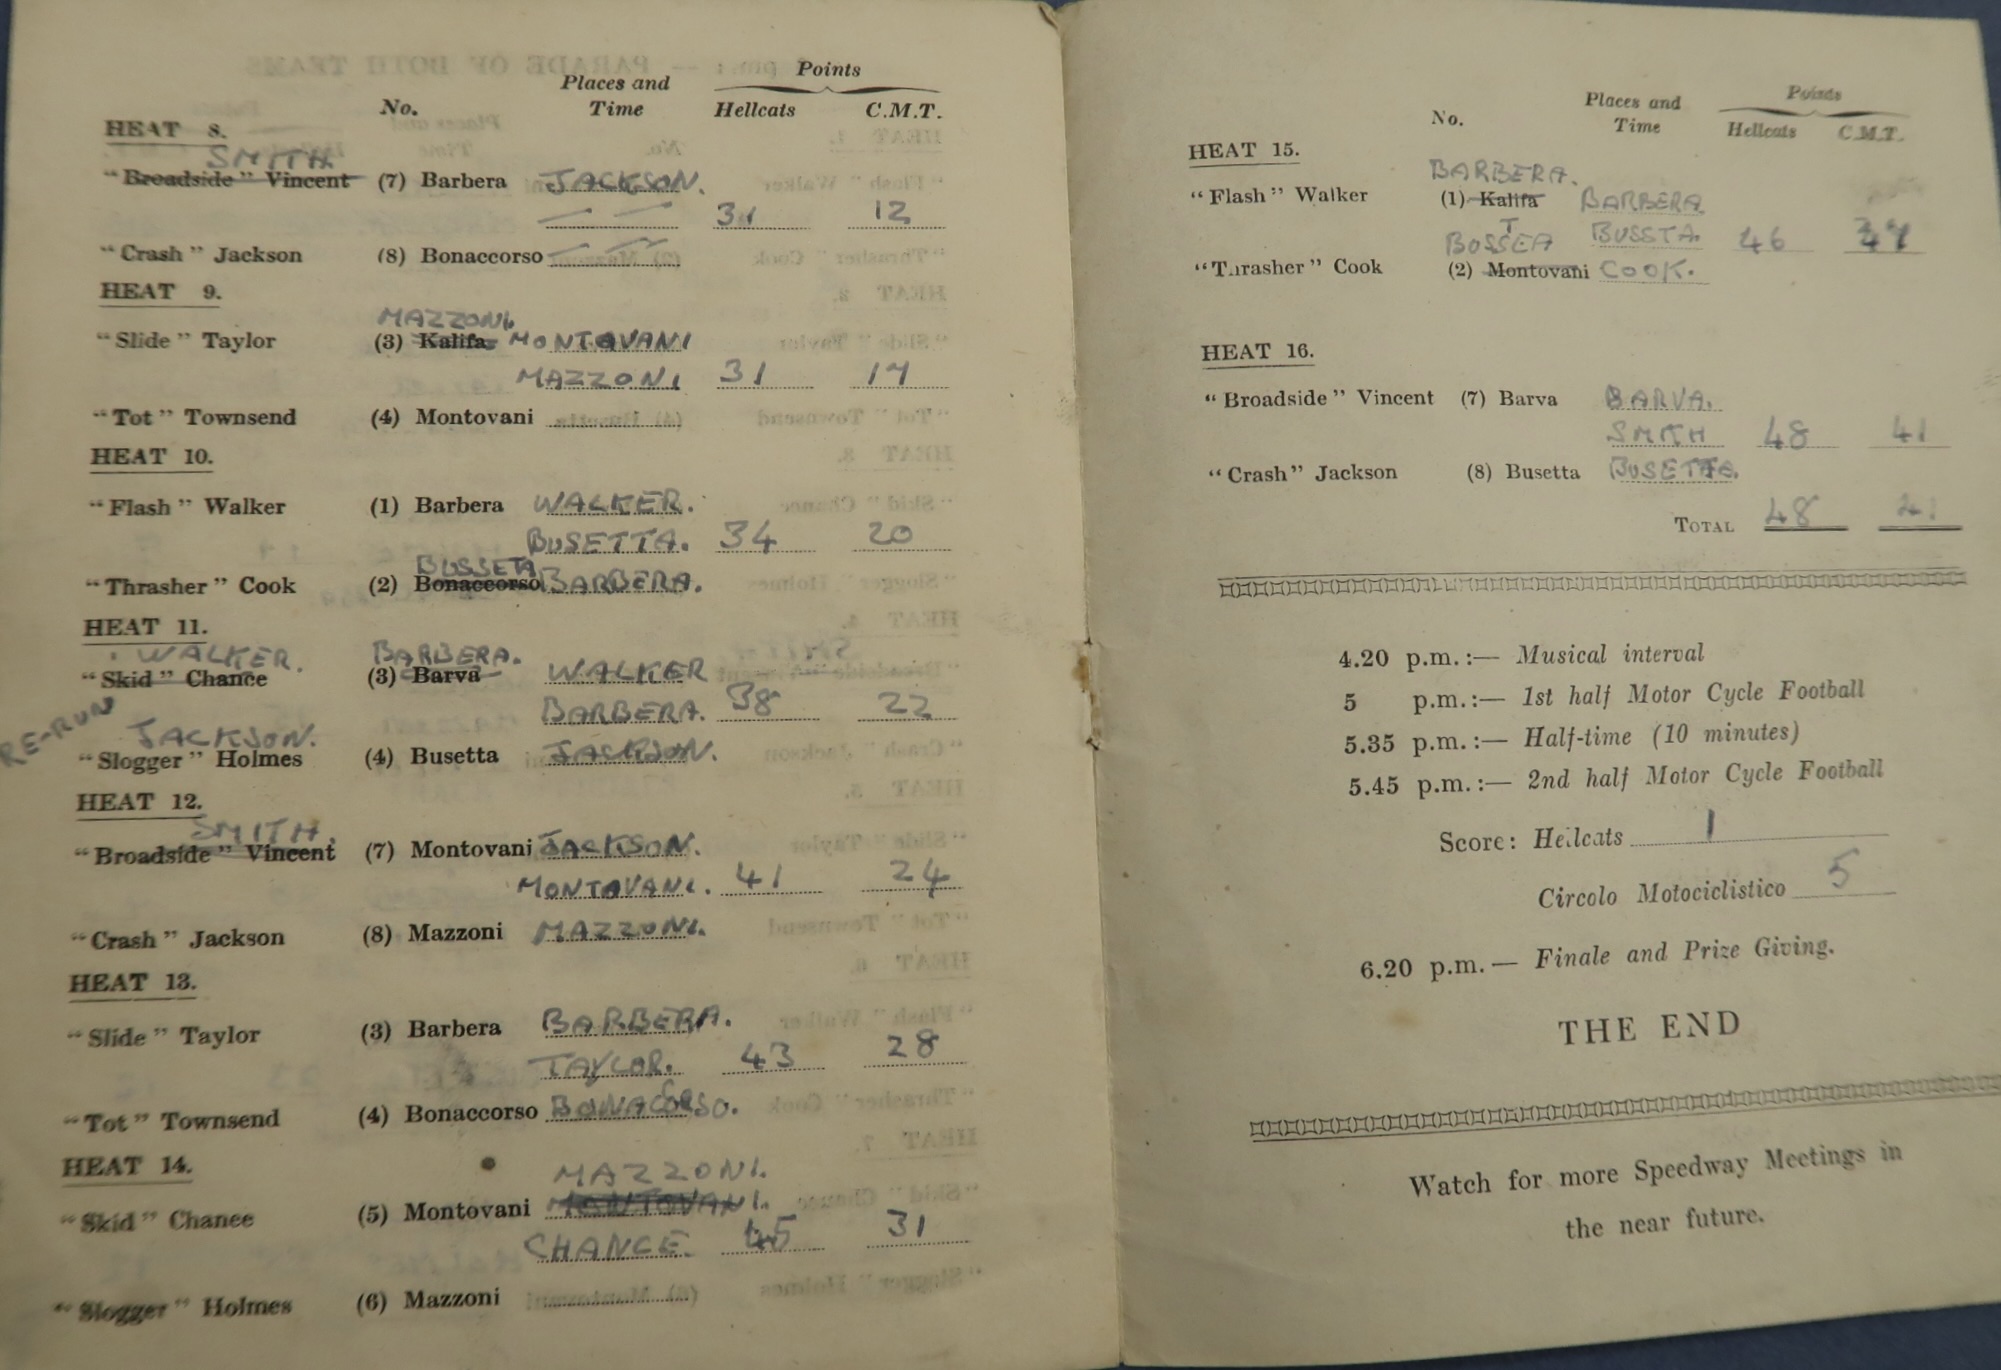 Points
Places and
No. Time Hellcats C.M.T.
HEAT 8.
SMITH
"Broadside" Vincent (7) Barbera JACKSON.
31 12
"Crash" Jackson (8) Bonaccorso
HEAT 9.
MAZZONI.
"Slide" Taylor (3) Kalifa MONTOVANI
MAZZONI 31 17
"Tot" Townsend (4) Montovani
HEAT 10.
"Flash" Walker (1) Barbera WALKER.
BUSETTA. 34 20
BUSSETA
"Thrasher" Cook (2) Bonaccorso BARBERA.
HEAT 11.
WALKER. BARBERA.
"Skid" Chance (3) Barva WALKER
BARBERA. 38 22
RE-RUN JACKSON.
"Slogger" Holmes (4) Busetta JACKSON.
HEAT 12.
SMITH.
"Broadside" Vincent (7) Montovani JACKSON.
MONTOVANI. 41 24
"Crash" Jackson (8) Mazzoni MAZZONI.
HEAT 13.
"Slide" Taylor (3) Barbera BARBERA.
TAYLOR. 43 28
"Tot" Townsend (4) Bonaccorso BONACORSO.
HEAT 14.
MAZZONI.
"Skid" Chanee (5) Montovani MONTOVANI.
CHANCE. 45 31
"Slogger" Holmes (6) Mazzoni
Points
Places and
No. Time Hellcats C.M.T.
HEAT 15.
BARBERA.
"Flash" Walker (1) Kalifa BARBERA
BUSSTA. 46
"Thrasher" Cook (2) Montovani COOK.
HEAT 16.
"Broadside" Vincent (7) Barva BARVA.
SMITH 48 41
"Crash" Jackson (8) Busetta BUSETTA.
TOTAL 48 41
4.20 p.m.:— Musical interval
5 p.m.:— 1st half Motor Cycle Football
5.35 p.m.:— Half-time (10 minutes)
5.45 p.m.:— 2nd half Motor Cycle Football
Score: Hellcats 1
Circolo Motociclistico 5
6.20 p.m.— Finale and Prize Giving.
THE END
Watch for more Speedway Meetings in
the near future.